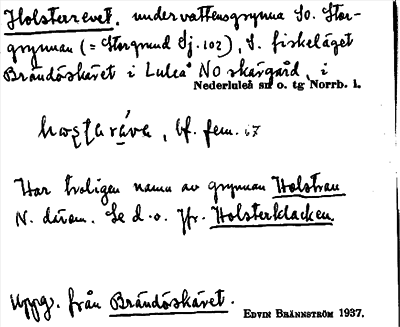 Holsterrevet, undervattensgrynna SO. Stor-
grynnan (= Storgrund Sj. 102), S. fiskeläget
Brändöskäret i Luleå NO skärgård, i
Nederluleå sn o. tg Norrb. l.
bf. fem.
Har troligen namn av grynnan Holstran
N. därom. Se d.o. Jfr. Holsterklacken.
Uppg. från Brändöskäret.
EDVIN BRÄNNSTRÖM 1937.